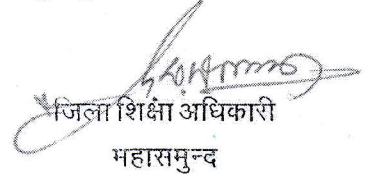 जिला शिक्षा अधिकारी
महासमुन्द